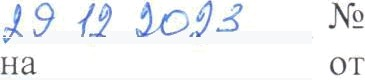 29 12 2023 №
на от